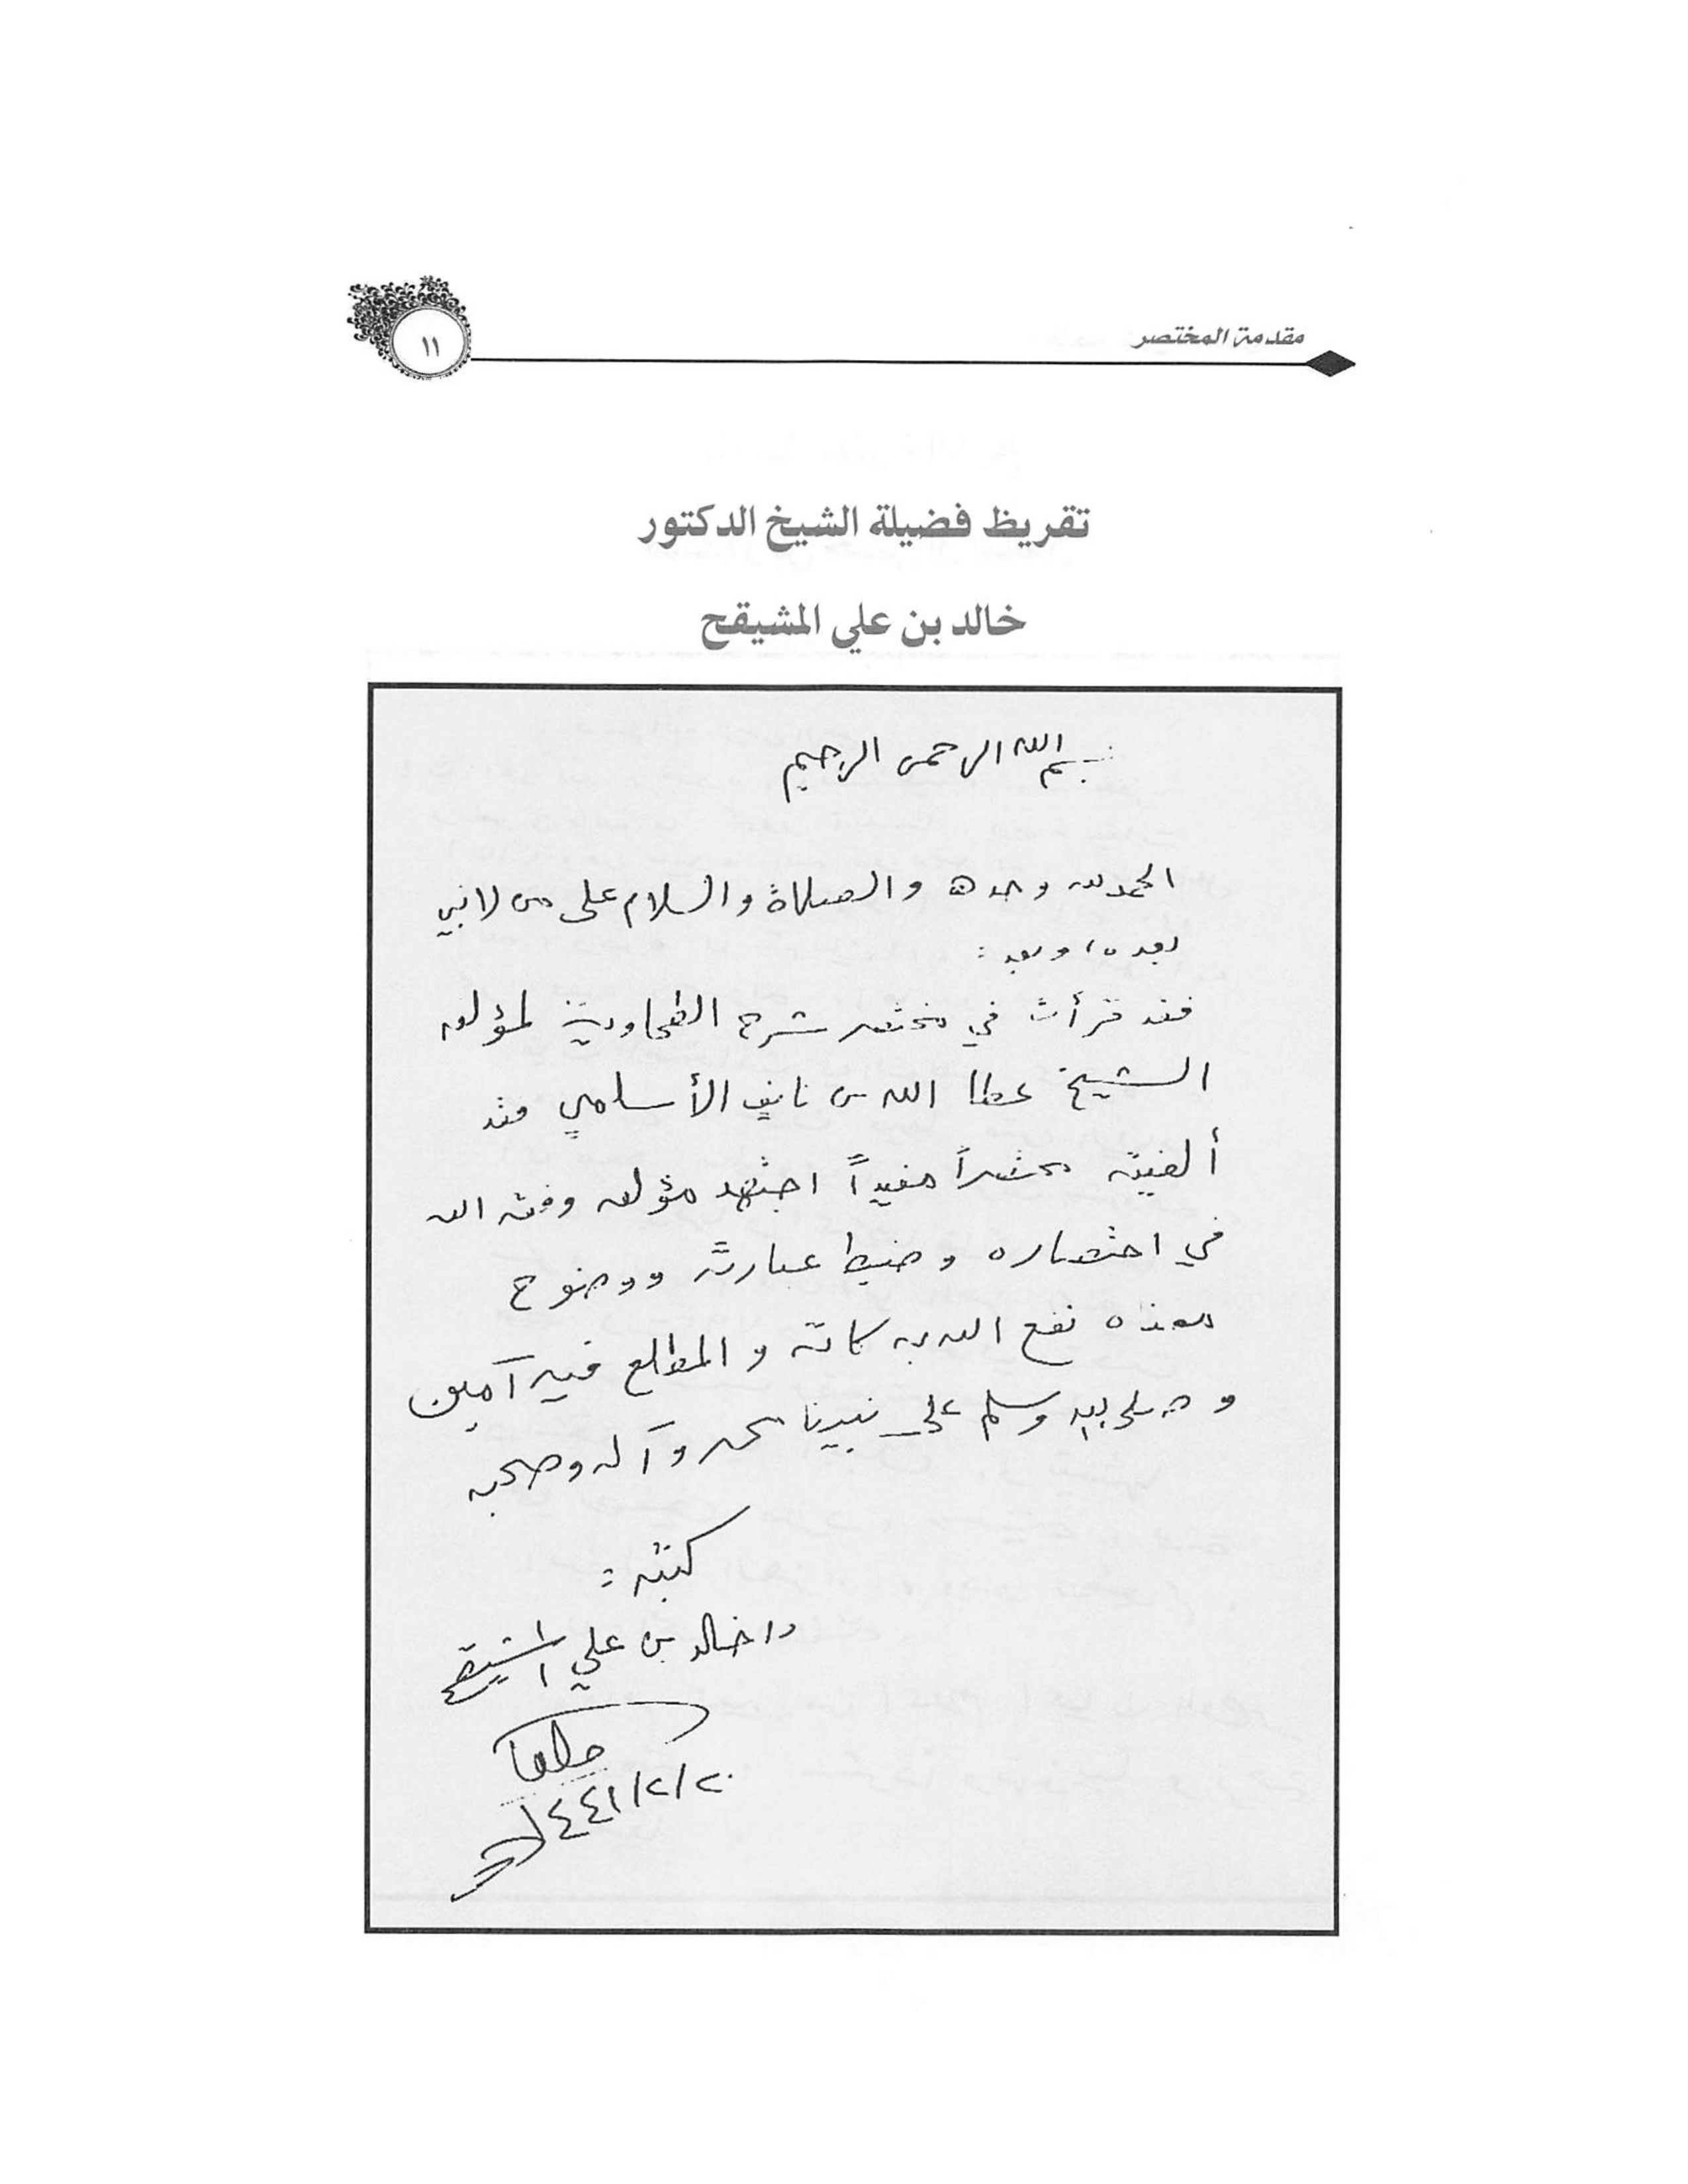 مقدمة المختصر
١١
تقريظ فضيلة الشيخ الدكتور
خالد بن علي المشيقح
بسم الله الرحمن الرحيم
الحمد لله وحده والصلاة والسلام على من لا نبي
بعده، وبعد:
فقد قرأت في مختصر شرح الطحاوية لمؤلفه
الشيخ عطا الله بن نايف الأسلمي فقد
ألفيته مختصراً مفيداً اجتهد مؤلفه وفقه الله
في اختصاره وضبط عبارته ووضوح
معناه نفع الله به كاتبه والمطلع فيه آمين
وصلى الله وسلم على نبينا محمد وآله وصحبه
كتبه:
د/ خالد بن علي المشيقح
٢٠/٢/١٤٤١هـ